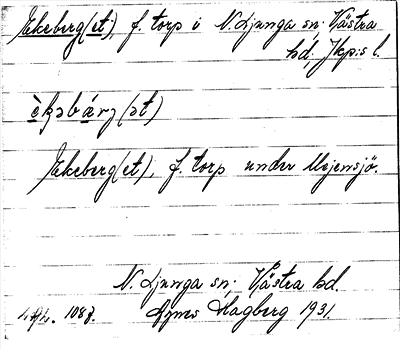 Ekeberg(et), f. torp i N. Ljunga sn; Västra
hd, Jkp:s l.
èkəbárj(ət)
Ekeberg(et), f. torp under Mejensjö.
N. Ljunga sn; Västra hd.
1087. Agnes Hagberg 1931.